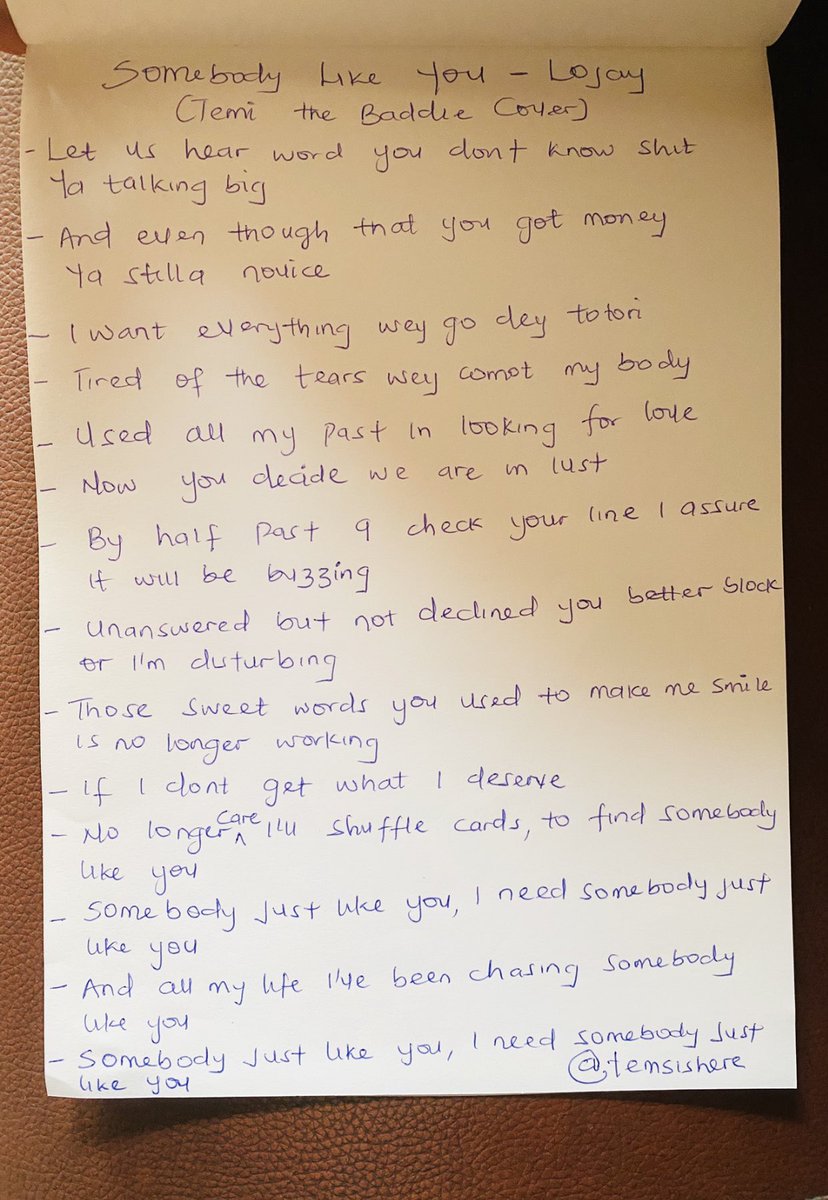 Somebody like you - Lojay
(Temi the Baddie Cover)
- Let us hear word you dont know shit
Ya talking big
- And even though that you got money
Ya still a novice
- I want everything wey go dey totori
- Tired of the tears wey comot my body
- Used all my past in looking for love
- Now you decide we are in lust
- By half past 9 check your line I assure
it will be buzzing
- Unanswered but not declined you better block
or I'm disturbing
- Those sweet words you used to make me smile
is no longer working
- If I dont get what I deserve
- No longer care I'll shuffle cards, to find somebody
like you
- Somebody just like you, I need somebody just
like you
- And all my life I've been chasing somebody
like you
- Somebody just like you, I need somebody just
like you @temsishere